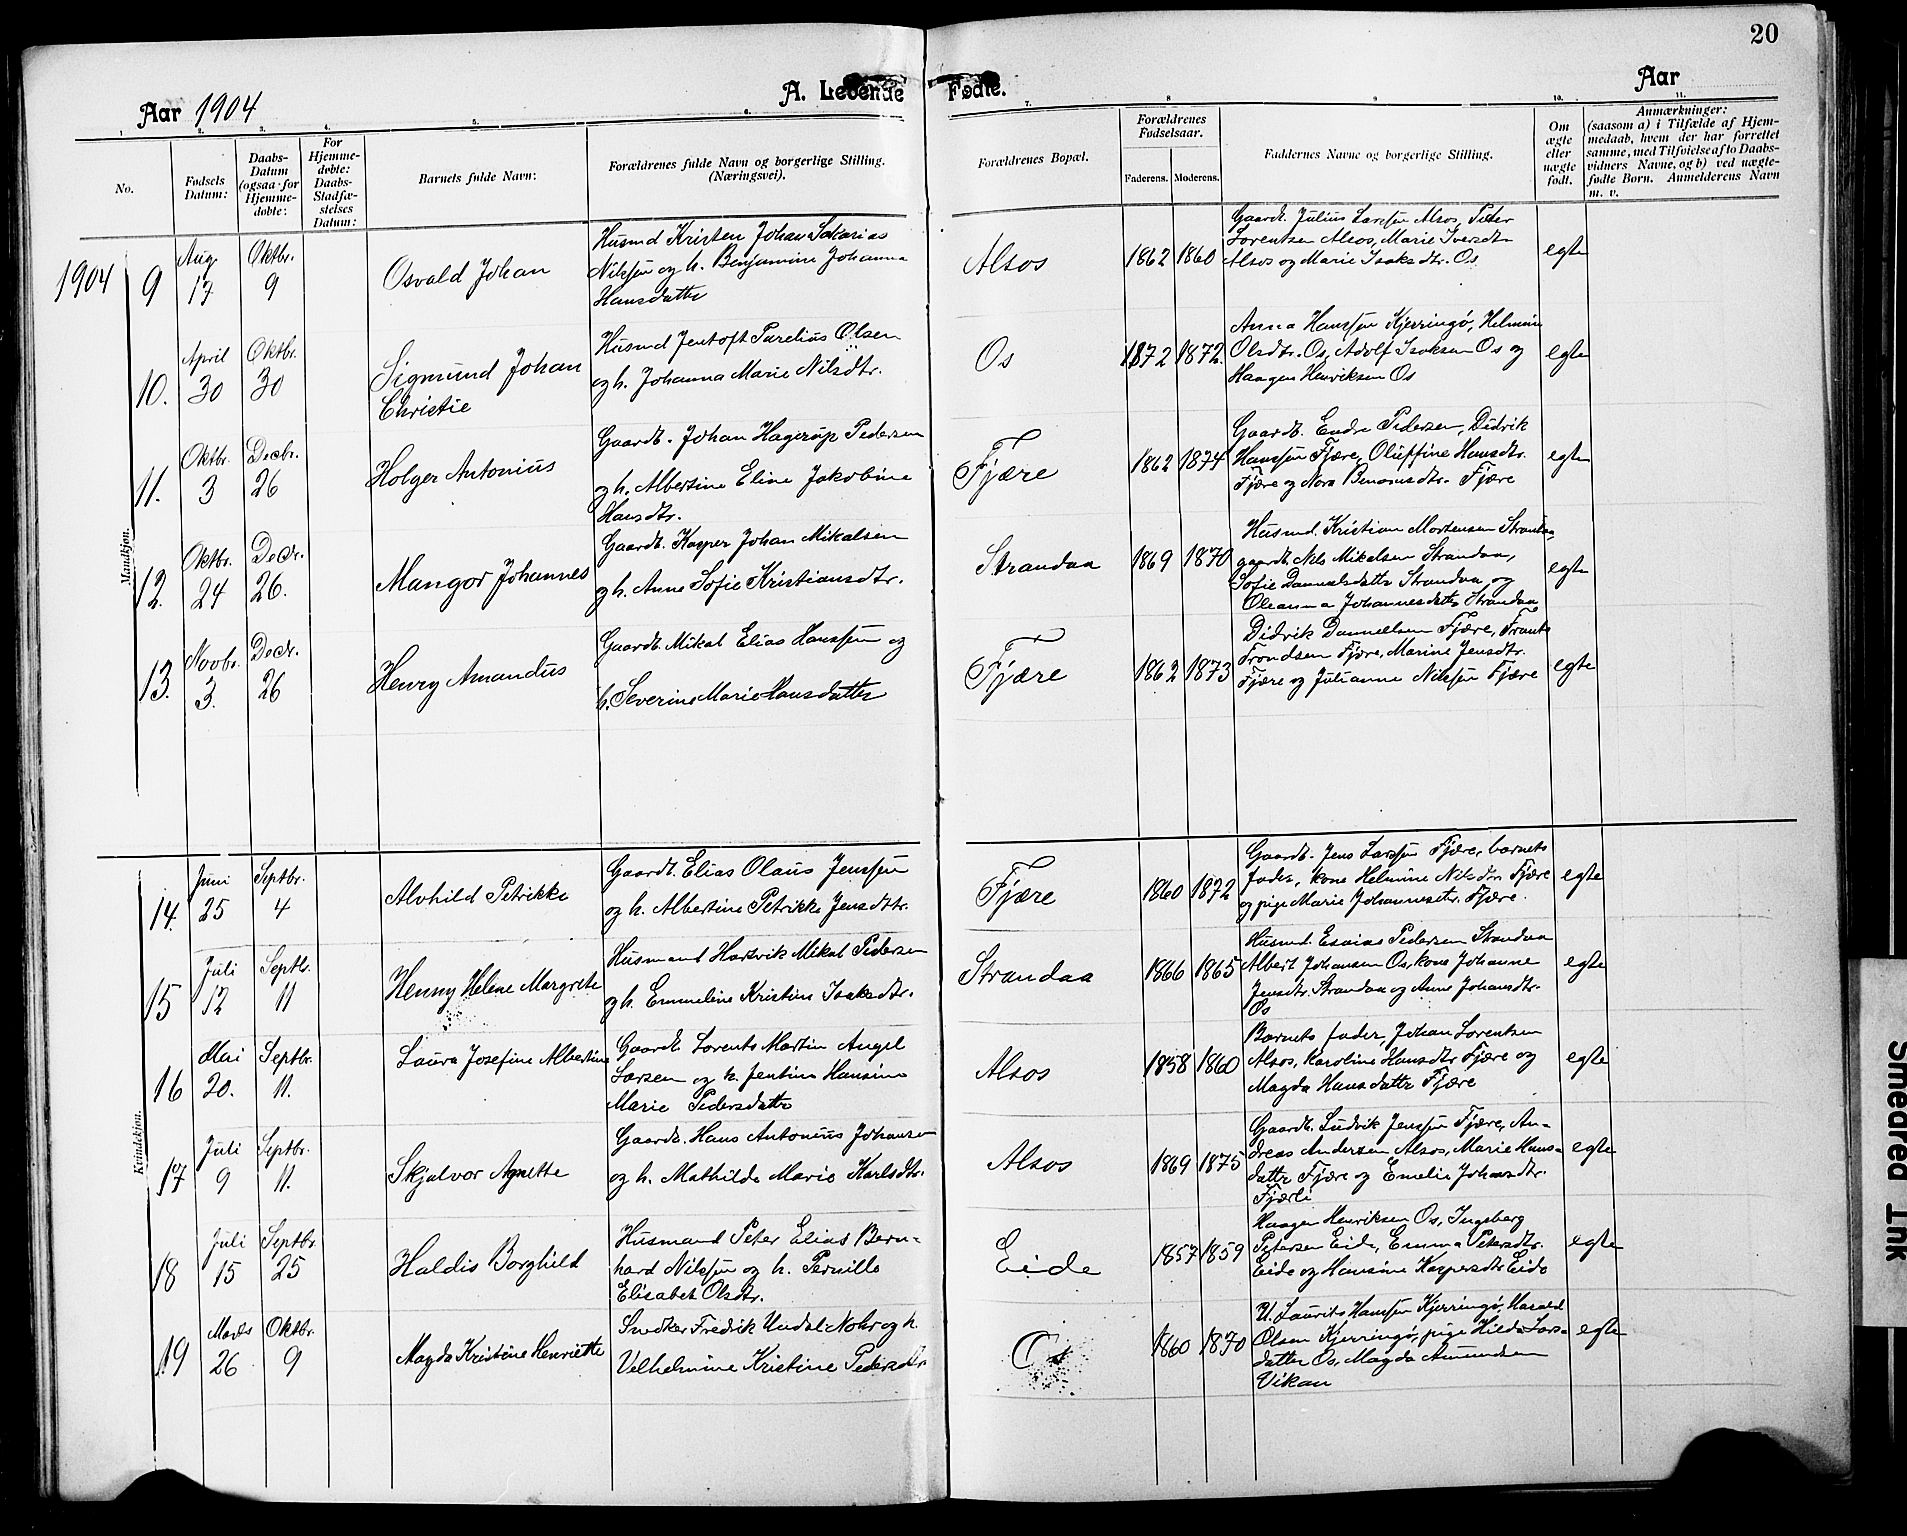 20
Aar 1904
A. Levende Fødte.
Aar
1. 2. 3. 4. 5. 6. 7. 8 9 10. 11.
No.
Fødsels Datum:
Daabs-Datum (ogsaa for Hjemme-døbte:
For Hjemme-døbte: Daabs-Stadfæ-stelses Datum:
Barnets fulde Navn:
Forældrenes fulde Navn og borgerlige Stilling. (Næringsvei).
Forældrenes Bopæl.
Forældrenes Fødselsaar.
Faderens. Moderens.
Faddernes Navne og borgerlige Stilling.
Om ægte eller uægte født.
Anmærkninger: (saasom a) i Tilfælde af Hjem-medaab, hvem der har forrettet samme, med Tilføielse af to Daabs-vidners Navne, og b) ved uægte-fødte Børn. Anmelderens Navn m. v.
Mandkjøn.
1904 9 Aug. 17 Oktbr. 9 Osvald Johan
Husmd Kristen Johan Sakarias
Nilssen og h. Benjamine Johanna
Hansdatter
Alsos 1862 1860
Gaardb. Julius Larssen Alsos, Peter
Lorentsen Alsos, Marie Iversdtr
Alsos og Marie Isaksdtr. Os
egte
10. April 30 Oktbr. 30 Sigmund Johan
Christie
Husmd Jentoft Parelius Olsen
og h. Johanna Marie Nilsdtr.
Os 1872 1872.
Anna Hanssen Kjerringø, Helmine
Olsdtr. Os, Adolf Isaksen Os og
Haagen Henriksen Os
egte
11. Oktbr. 3 Decbr. 26 Holger Antonius
Gaardb. Johan Hagerup Pedersen
og h. Albertine Eline Jakobine
Hansdtr.
Fjære 1862 1874
Gaardb. Endre Pedersen, Didrik
Hanssen Fjære, Oluffine Hansdtr.
Fjære og Nora Benonisdtr. Fjære
egte
12. Oktbr. 24 Decbr. 26. Mangor Johannes
Gaardb. Kasper Johan Mikalsen
og h. Anne Sofie Kristiansdtr.
Strandaa 1869 1870
Husmd. Kristian Mortensen Strandaa
gaardb. Nils Mikalsen Strandaa,
Sofie Danielsdatter Strandaa og
Oleanna Johannesdatter Strandaa
egte
13. Novbr. 3. Decbr. 26 Henry Amandus
Gaardb. Mikal Elias Hanssen og
h. Severine Marie Hansdatter
Fjære 1862 1873
Didrik Danielsen Fjære, Frants
Trondsen Fjære, Marine Jensdtr.
Fjære og Julianne Nilssen Fjære
egte
Kvindekjøn.
14. Juni 25 Septbr. 4 Alvhild Petrikke
Gaardb. Elias Olaus Jenssen
og h. Albertine Petrikke Jensdtr.
Fjære 1860 1872
Gaardb. Jens Larssen Fjære, barnets
fader, kone Helmine Nilsdtr Fjære
og pige Marie Johannesdtr. Fjære.
egte
15 Juli 12 Septbr. 11 Henny Helene Margrete
Husmand Hartvik Mikal Pedersen
og h. Emmeline Kristine Isaksdtr.
Strandaa 1866 1865
Husmd. Esaias Pedersen Strandaa
Albert Johansen Os, kone Johanne
Jensdtr. Strandaa og Anne Johansdtr.
Os
egte
16 Mai 20. Septbr. 11. Laura Josefine Albertine
Gaardb. Lorents Martin Angel
Larsen og h. Jentine Hansine
Marie Pedersdatter
Alsos 1858 1860
Barnets fader, Johan Lorentsen
Alsos, Karoline Hansdtr Fjære og
Magda Hansdatter Fjære
egte
17 Juli 9 Septbr. 11. Skjalvor Agnette
Gaardb. Hans Antonius Johansen
og h. Mathilde Marie Karlsdtr.
Alsos 1869 1875
Gaardb. Ludvik Jenssen Fjære, An-
dreas Andersen Alsos, Marie Hans-
datter Fjære og Emelie Johansdtr.
Fjærli
egte
18 Juli 15 Septbr. 25 Haldis Borghild
Husmand Peter Elias Bern-
hard Nilssen og h. Pernille
Elisabet Olsdtr.
Eide 1857 1859
Haagen Henriksen Os, Ingeberg
Petersen Eide, Emma Petersdtr.
Eide og Hansine Kaspersdtr Eide
egte
19 Marts 26 Oktbr. 9 Magda Kristine Henriette
Snedker Fredrik Undal Nohr og h.
Velhelmine Kristine Pedersdtr
Os 1860 1870
U. Laurits Hanssen Kjerringø, Harald
Olsen Kjerringø, pige Hilda Lars-
datter Os, Magda Amundsen
Vikan
egte
Smeared Ink